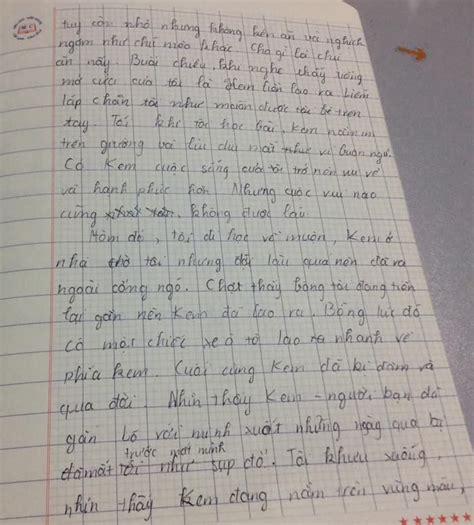 tuy còn nhỏ nhưng không kén ăn và nghịch
ngợm như chú mèo khác. Cho gì là chú
ăn nấy. Buổi chiều, khi nghe thấy tiếng
mở cửa của tôi là Kem liền lao ra liếm
láp chân tôi như muốn được tôi bế trên
tay. Tối khi tôi học bài, Kem nằm im
trên giường với líu díu mắt như vì buồn ngủ.
Có Kem cuộc sống của tôi trở nên vui vẻ
và hạnh phúc hơn. Nhưng cuộc vui nào
cũng không được lâu
Hôm đó, tôi đi học về muộn, Kem ở
nhà chờ tôi nhưng đợi lâu quá nên đã ra
ngoài cổng ngó. Chợt thấy bóng tôi đang tiến
lại gần nên Kem đã lao ra. Bỗng lúc đó
có một chiếc xe ô tô lao ra nhanh về
phía Kem. Cuối cùng Kem đã bị đâm và
qua đời. Nhìn thấy Kem - người bạn đã
gắn bó với mình suốt những ngày qua bị
trước mặt mình
đâm tôi như sụp đổ. Tôi khuỵu xuống,
nhìn thấy Kem đang nằm trên vũng máu,